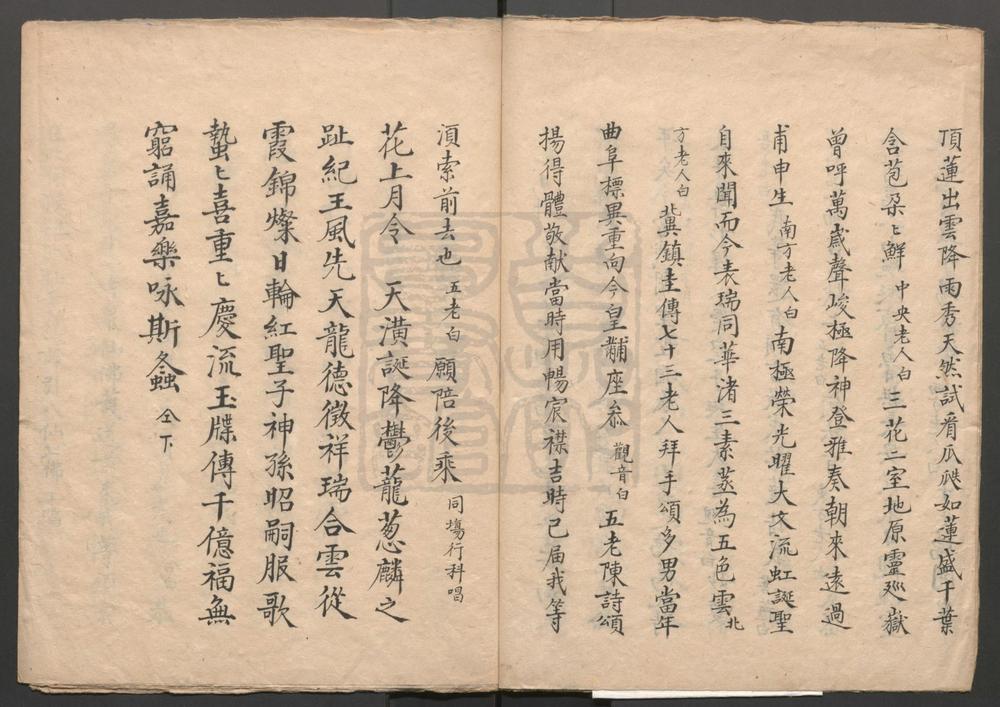 頂蓮出雲降雨秀天然試看瓜瓞如蓮盛千葉
含苞朶〻鮮 中央老人白 三花二室地原靈巡嶽
曾呼萬歲聲峻極降神登雅奏朝來遠過
甫申生 南方老人白 南極榮光曜大文流虹誕聖
自來聞而今表瑞同華渚三素蒸為五色雲 北
方老人白 冀鎮圭傳七十三老人拜手頌多男當年
曲阜標異重向今皇黼座叅 觀音白 五老陳詩頌
揚得體敬献當時用暢宸襟吉時已届我等
湏索前去也 五老白 願陪後乘 同塲行科唱
花上月令 天潢誕降鬱蘢葱麟之
趾紀王風先天龍德徵祥瑞合雲從
霞錦燦日輪紅聖子神孫昭嗣服歌
蟄〻喜重〻慶流玉牒傳千億福無
窮誦嘉樂咏斯螽 仝下